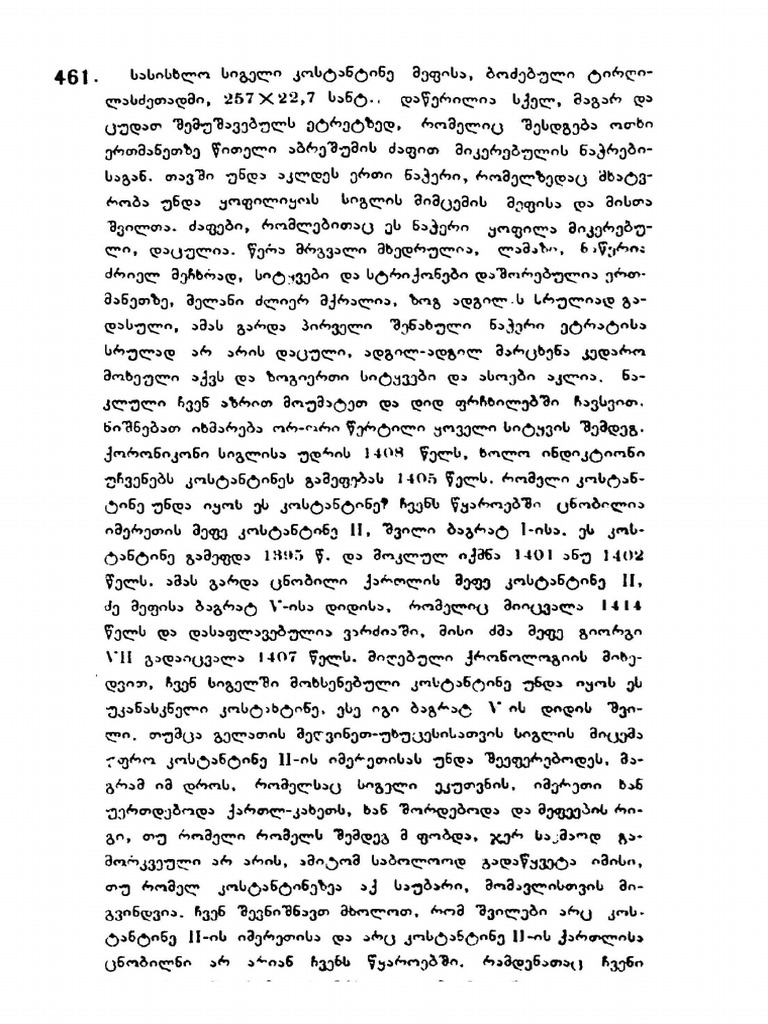 461. სასისხლო სიგელი კოსტანტინე მეფისა, ბოძებული ტირღი-
ლასძეთადმი, 257×22,7 სანტ., დაწერილია სქელ, მაგარ და
ცუდათ შემუშავებულს ეტრეტზედ, რომელიც შესდგება ოთხი
ერთმანეთზე წითელი აბრეშუმის ძაფით მიკერებულის ნაჭრები-
საგან. თავში უნდა აკლდეს ერთი ნაჭერი, რომელზედაც მხატვ-
რობა უნდა ყოფილიყოს სიგლის მიმცემის მეფისა და მისთა
შვილთა. ძაფები, რომლებითაც ეს ნაჭერი ყოფილა მიკერებუ-
ლი, დაცულია. წერა მრგვალი მხედრულია, ლამაზი, ნაწერია
ძრიელ მეჩხრად, სიტყვები და სტრიქონები დაშორებულია ერთ-
მანეთზე, მელანი ძლიერ მქრალია, ზოგ ადგილას სრულიად გა-
დასული, ამას გარდა პირველი შენახული ნაჭერი ეტრატისა
სრულად არ არის დაცული, ადგილ-ადგილ მარცხენა კედარო
მოხეული აქვს და ზოგიერთი სიტყვები და ასოები აკლია. ნა-
კლული ჩვენ აზრით მოუმატეთ და დიდ ფრჩხილებში ჩავსვით.
ნიშნებათ იხმარება ორ-ორი წერტილი ყოველი სიტყვის შემდეგ.
ქორონიკონი სიგლისა უდრის 1408 წელს, ხოლო ინდიქტიონი
უჩვენებს კოსტანტინეს გამეფებას 1405 წელს. რომელი კოსტან-
ტინე უნდა იყოს ეს კოსტანტინე? ჩვენს წყაროებში ცნობილია
იმერეთის მეფე კოსტანტინე II, შვილი ბაგრატ I-ისა. ეს კოს-
ტანტინე გამეფდა 1395 წ. და მოკლულ იქმნა 1401 ანუ 1402
წელს. ამას გარდა ცნობილი ქართლის მეფე კოსტანტინე II,
ძე მეფისა ბაგრატ V-ისა დიდისა, რომელიც მიიცვალა 1414
წელს და დასაფლავებულია ვარძიაში, მისი ძმა მეფე გიორგი
VII გადაიცვალა 1407 წელს. მიღებული ქრონოლოგიის მიხე-
დვით, ჩვენ სიგელში მოხსენებული კოსტანტინე უნდა იყოს ეს
უკანასკნელი კოსტანტინე, ესე იგი ბაგრატ V ის დიდის შვი-
ლი. თუმცა გელათის მეღვინეთ-უხუცესისათვის სიგლის მიცემა
უფრო კოსტანტინე II-ის იმერეთისას უნდა შეეფერებოდეს, მა-
გრამ იმ დროს, რომელსაც სიგელი ეკუთვნის, იმერეთი ხან
უერთდებოდა ქართლ-კახეთს, ხან შორდებოდა და მეფეების რი-
გი, თუ რომელი რომელს შემდეგ მ ფობდა, ჯერ საკმაოდ გა-
მორკვეული არ არის, ამიტომ საბოლოოდ გადაწყვეტა იმისი,
თუ რომელ კოსტანტინეზეა აქ საუბარი, მომავლისთვის მი-
გვინდვია. ჩვენ შევნიშნავთ მხოლოთ, რომ შვილები არც კოს-
ტანტინე II-ის იმერეთისა და არც კოსტანტინე II-ის ქართლისა
ცნობილნი არ არიან ჩვენს წყაროებში. რამდენათაც ჩვენი